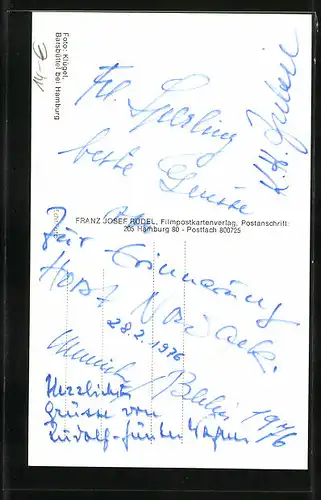 Foto: Klügel,
Barsbüttel bei Hamburg
14.-€
Frl. Sperling
beste Grüsse
K.H.
FRANZ JOSEF RÜDEL, Filmpostkartenverlag, Postanschrift:
205 Hamburg 80 - Postfach 800725
Zur Erinnerung
Horst Nowack.
28.2.1976
1976
Herzlichst
Grüsse von
Rudolf-Günter Wagner